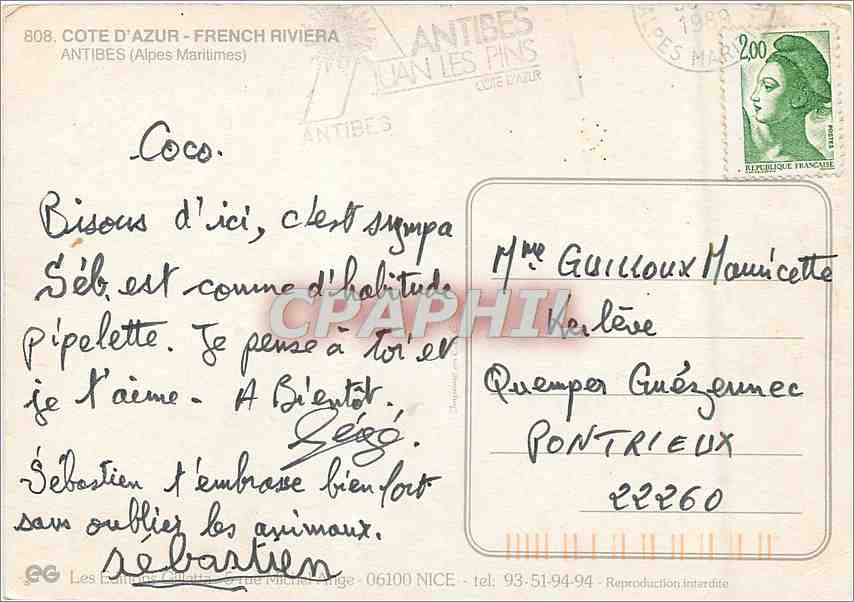 808. COTE D'AZUR - FRENCH RIVIERA
ANTIBES (Alpes Maritimes)
ANTIBES
JUAN LES PINS
COTE D'AZUR
ANTIBES
1989
ALPES MARIT
2,00
POSTES
REPUBLIQUE FRANCAISE
Coco.
Bisous d'ici, c'est sympa
Séb. est comme d'habitude
pipelette. Je pense à toi et
je t'aime - A Bientôt.
Gégé.
Sébastien t'embrasse bien fort
sans oublier les animaux.
sébastien
Mme GUILLOUX Mauricette
Kerlève
Quemper Guézennec
PONTRIEUX
22260
CPAPHIL
EG Les Editions Gilletta - 6 rue Michel Ange - 06100 NICE - tel: 93-51-94-94 - Reproduction interdite